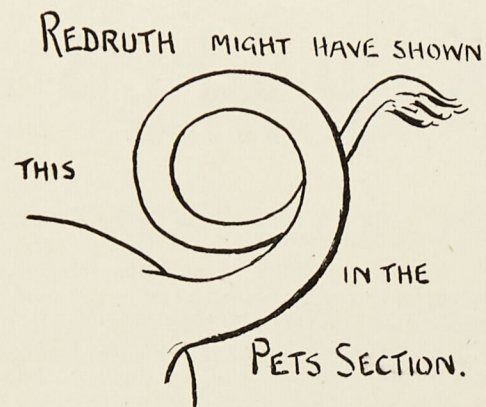 REDRUTH MIGHT HAVE SHOWN
THIS
IN THE
PETS SECTION.